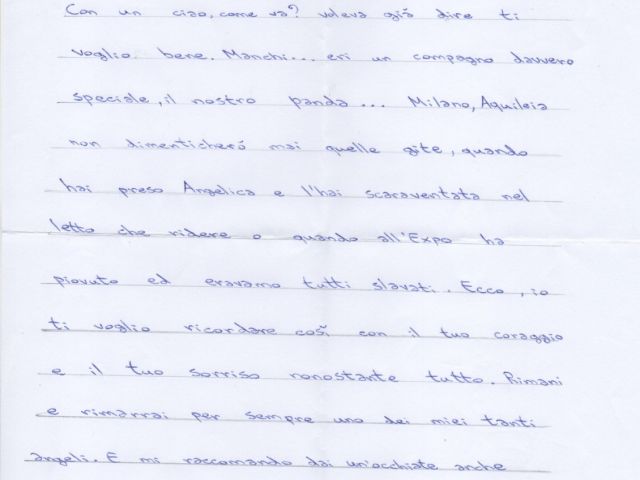 Con un ciao, come va? voleva già dire ti
voglio bene. Manchi... eri un compagno davvero
speciale, il nostro panda... Milano, Aquileia
non dimenticherò mai quelle gite, quando
hai preso Angelica e l'hai scaraventata nel
letto che ridere o quando all'Expo ha
piovuto ed eravamo tutti slavati. Ecco, io
ti voglio ricordare così con il tuo coraggio
e il tuo sorriso nonostante tutto. Rimani
e rimarrai per sempre uno dei miei tanti
angeli. E mi raccomando dai un'occhiate anche